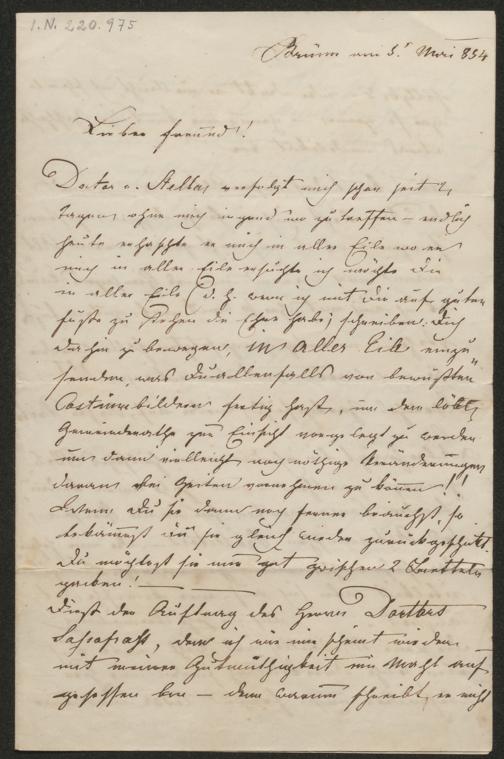 I.N. 220.975
Brünn am 5t Mai 854
Lieber Freund!
Doctor v. verfolgt mich schon seit 2
Tagen, ohne mich irgend wo zu treffen – endlich
heute erhaschte er mich in aller Eile wo er
mich in aller Eile ersuchte ich möchte Dir
in aller Eile (d. h. wenn ich mit Dir auf gutem
Fuße zu stehen die Ehre habe) schreiben: Dich
dahin zu bewegen, in aller Eile einzu
senden, was Du allenfalls von bewußten
Costümebildern fertig hast, um dem löbl.
Gemeinderathe zur Einsicht vorgelegt zu werden
um dann vielleicht noch nöthige Veränderungen
daran bei Zeiten vornehmen zu können!!!
Du sie dann noch ferner brauchst, so
bekömmst Du sie gleich wieder zurückgeschickt.
Du möchtest sie nur gut zwischen 2 Bretteln
packen!
Dieß der Auftrag des Herrn Doctors
, dem ich wie mir scheint wieder
mit meiner Gutmüthigkeit ein Mahl auf
gesessen bin – denn warum schreibt er nicht